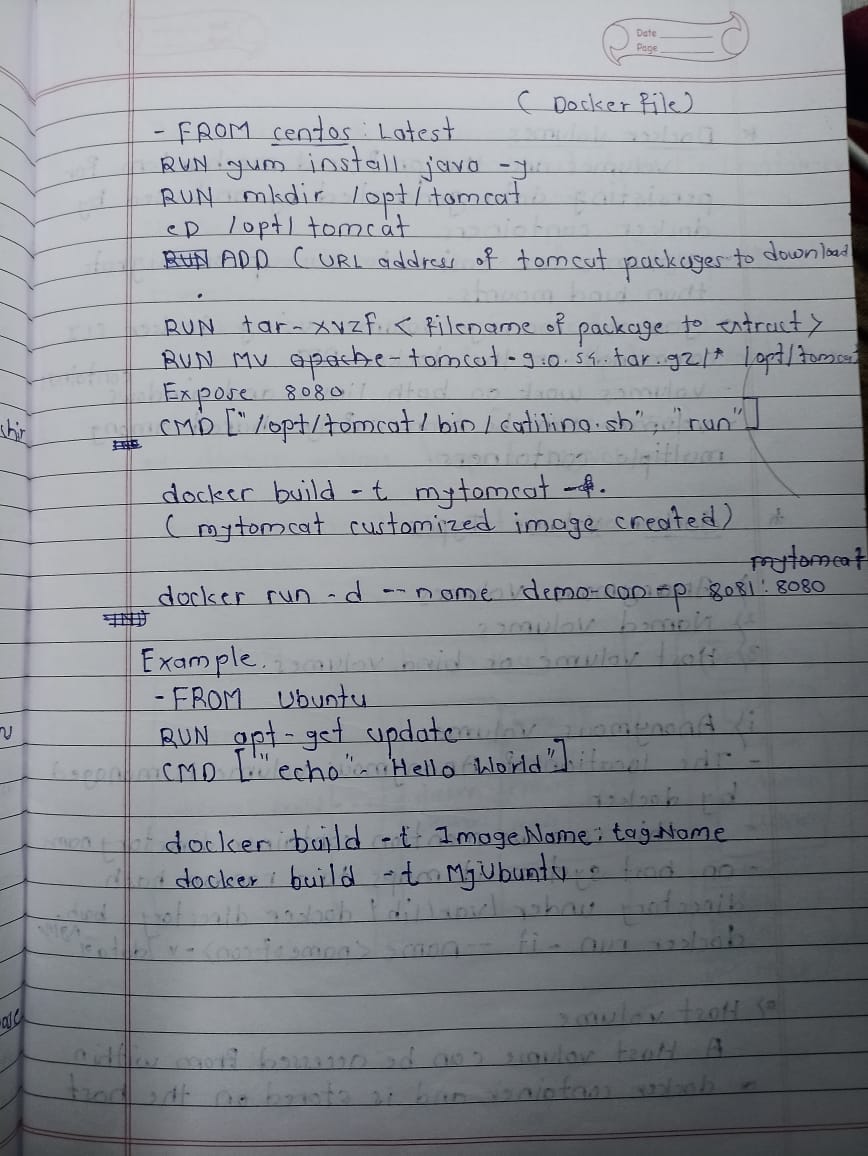 Date
Page
( Docker file)
- FROM centos : Latest
RUN yum install java -y
RUN mkdir /opt/tomcat
CD /opt/ tomcat
ADD ( URL address of tomcat packages to download
RUN tar - xvzf < filename of package to extract>
RUN MV apache-tomcat-9.0.54.tar.gz/* /opt/tomcat
Expose 8080
CMD ["/opt/tomcat/bin/catilina.sh", "run"]
docker build -t mytomcat .
( mytomcat customized image created)
mytomcat
docker run -d --name demo-con -p 8081:8080
Example.
- FROM Ubuntu
RUN apt-get update
CMD ["echo"- Hello World"]
docker build -t ImageName: tagName
docker build -t MyUbuntu